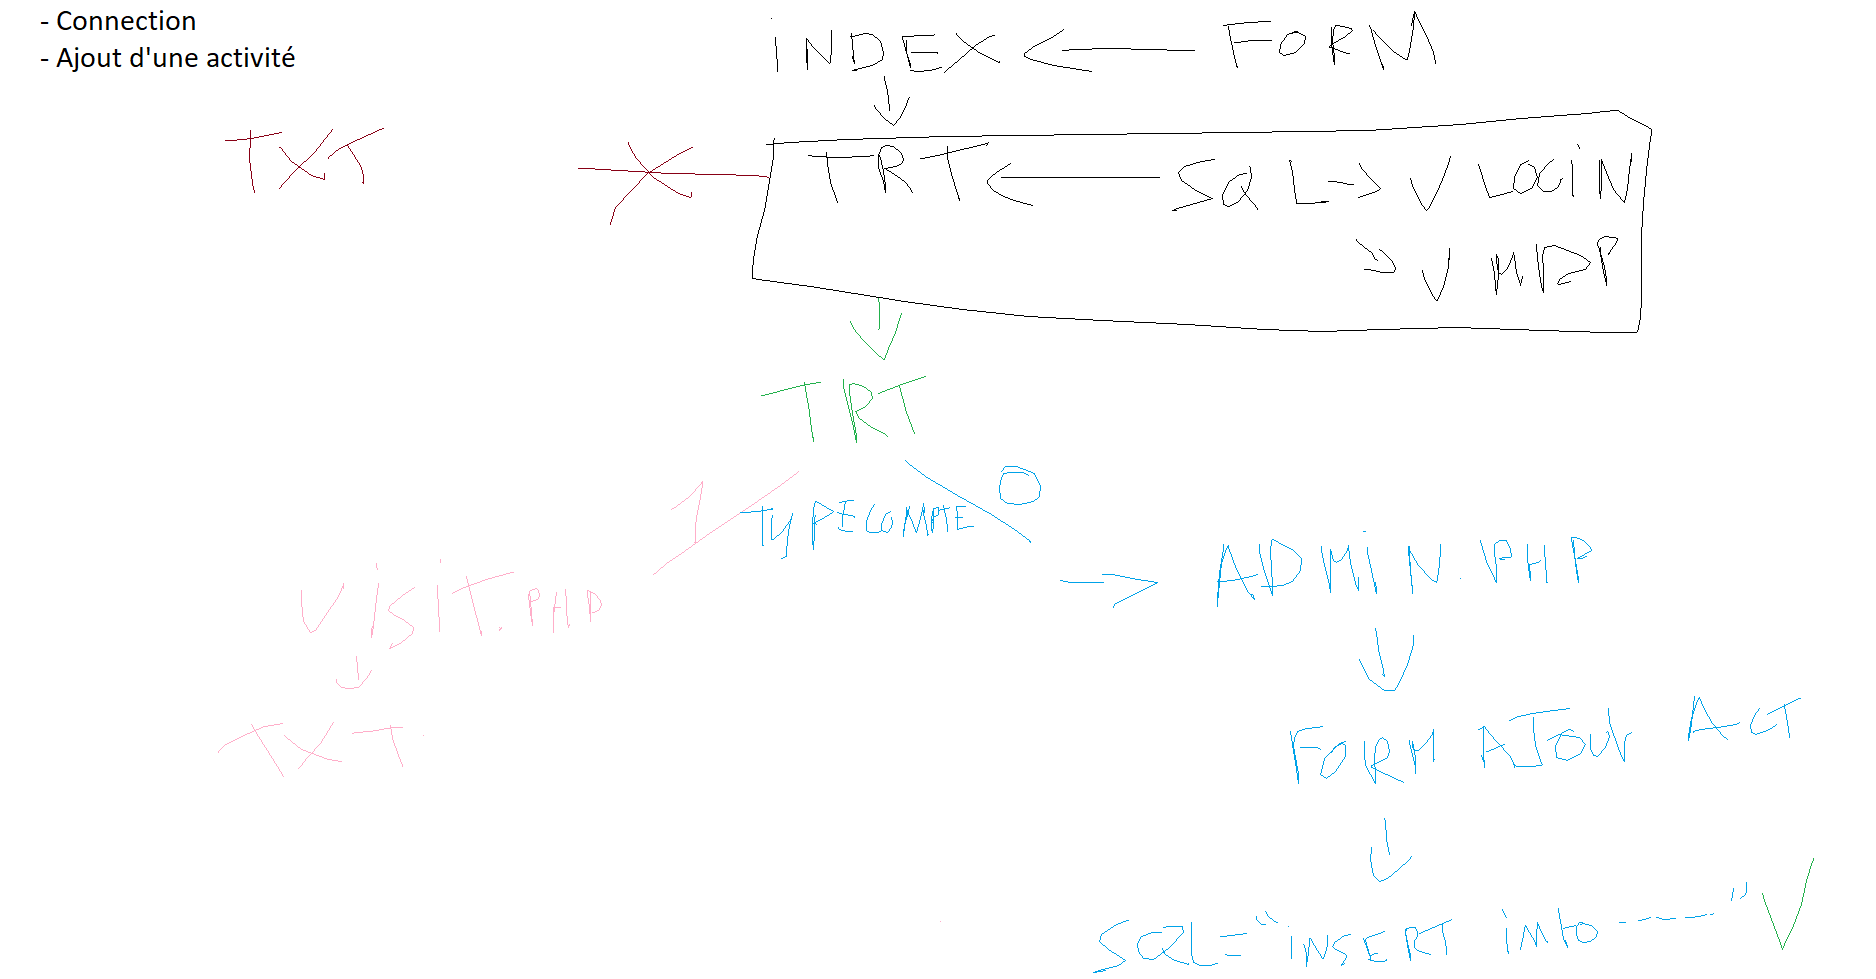 - Connection
- Ajout d'une activité
INDEX ← FORM
TXT
TRT ← SQL → V LOGIN
→ V MDP
TRT
1 TYPECOMPTE 0
ADMIN.PHP
VISIT.PHP
FORM AJOUT ACT
TXT
SQL = "INSERT into ------" V